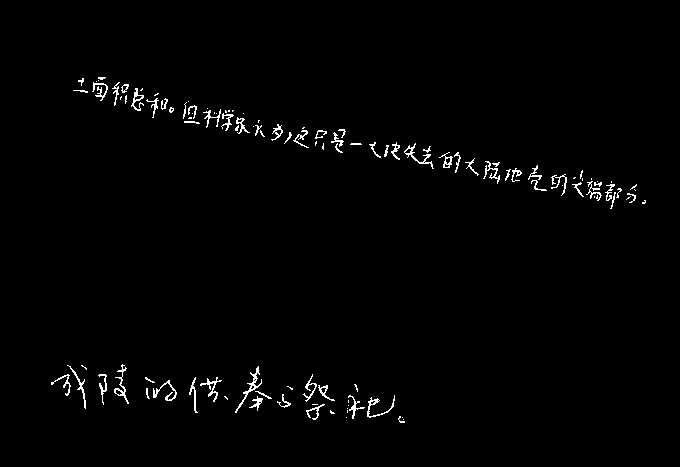 土面积总和。但科学家认为,这只是一大块失去的大陆地壳的尖端部分。
成陵的供奉与祭祀。